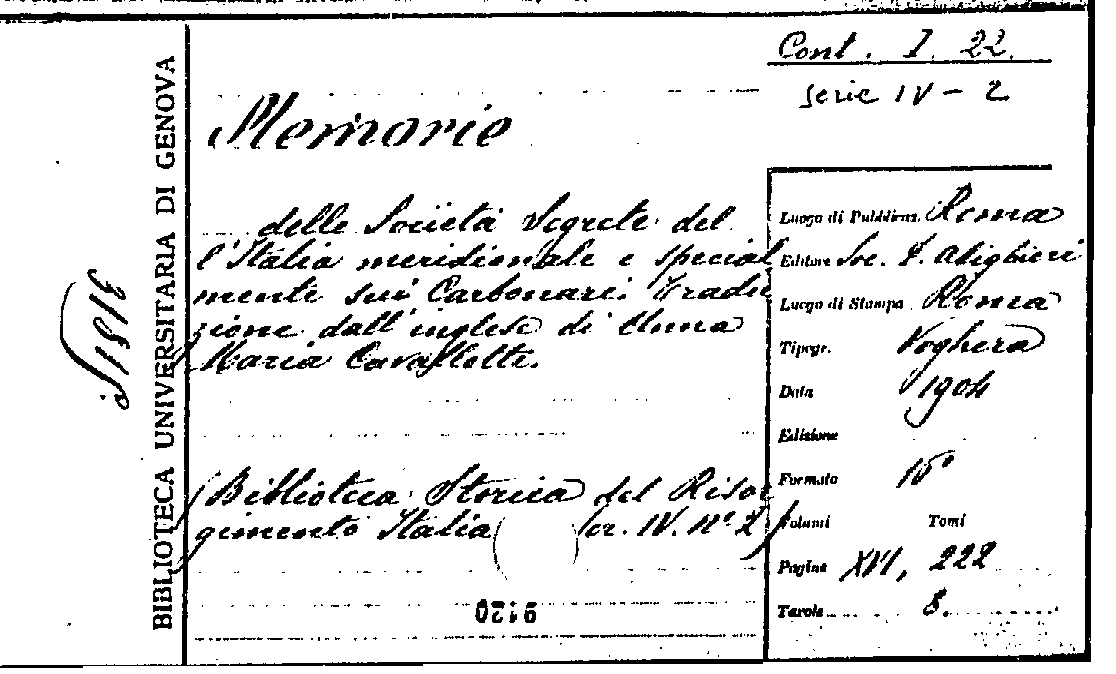 Cont. I. 22.
serie IV - 2
BIBLIOTECA UNIVERSITARIA DI GENOVA
Memorie
delle Società Segrete del
l'Italia meridionale e special
mente sui Carbonari. Tradu
zione dall'inglese di Anna
Maria Cavallotti.
(Biblioteca Storica del Risor
gimento Italia( ) ser. IV. Nº 2)
Luogo di Pubblicaz. Roma
Editore Soc. D. Alighieri
Luogo di Stampa Roma
Tipogr. Voghera
Data 1904
Edizione
Formato 16º
Volumi Tomi
Pagine XVI, 222
Tavole 8.